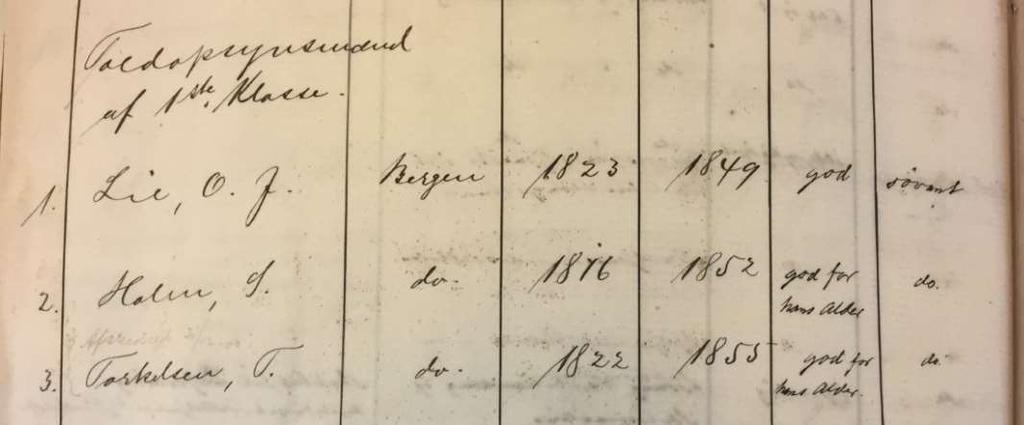 Toldopsynsmænd
af 1ste Klasse.
1. Lie, O. J. Bergen 1823 1849 god søvant
2. Holm, S. do. 1816 1852 god for hans Alder do.
3. Torkelsen, T. do. 1822 1855 god for hans Alder. do